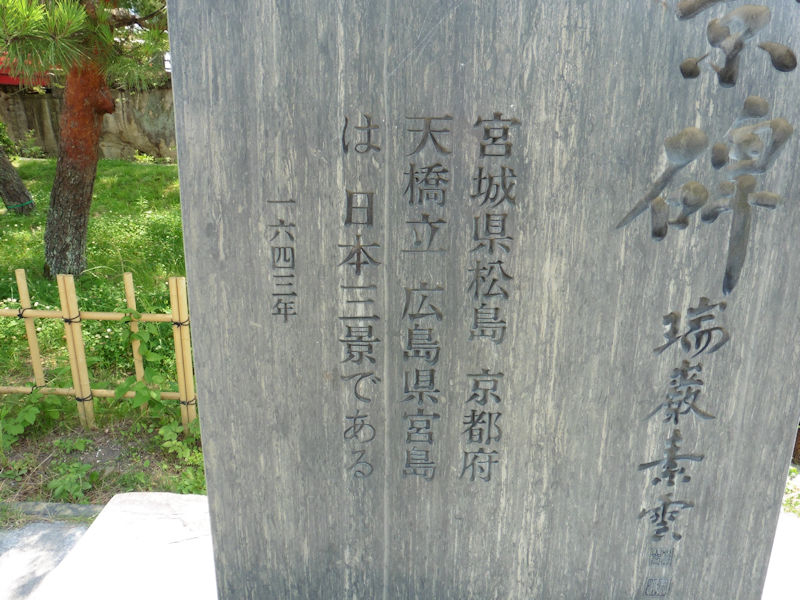 京碑
瑞巌素雲
宮城県松島 京都府
天橋立 広島県宮島
は 日本三景である
一六四三年